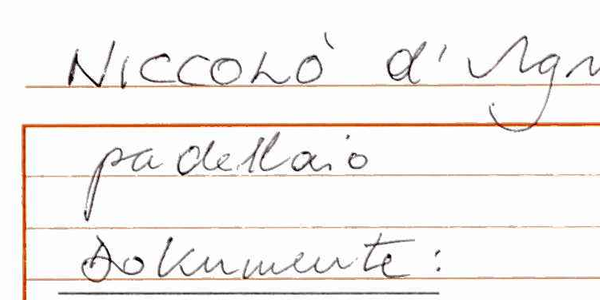 NICCOLÒ d'
padellaio
Dokumente: